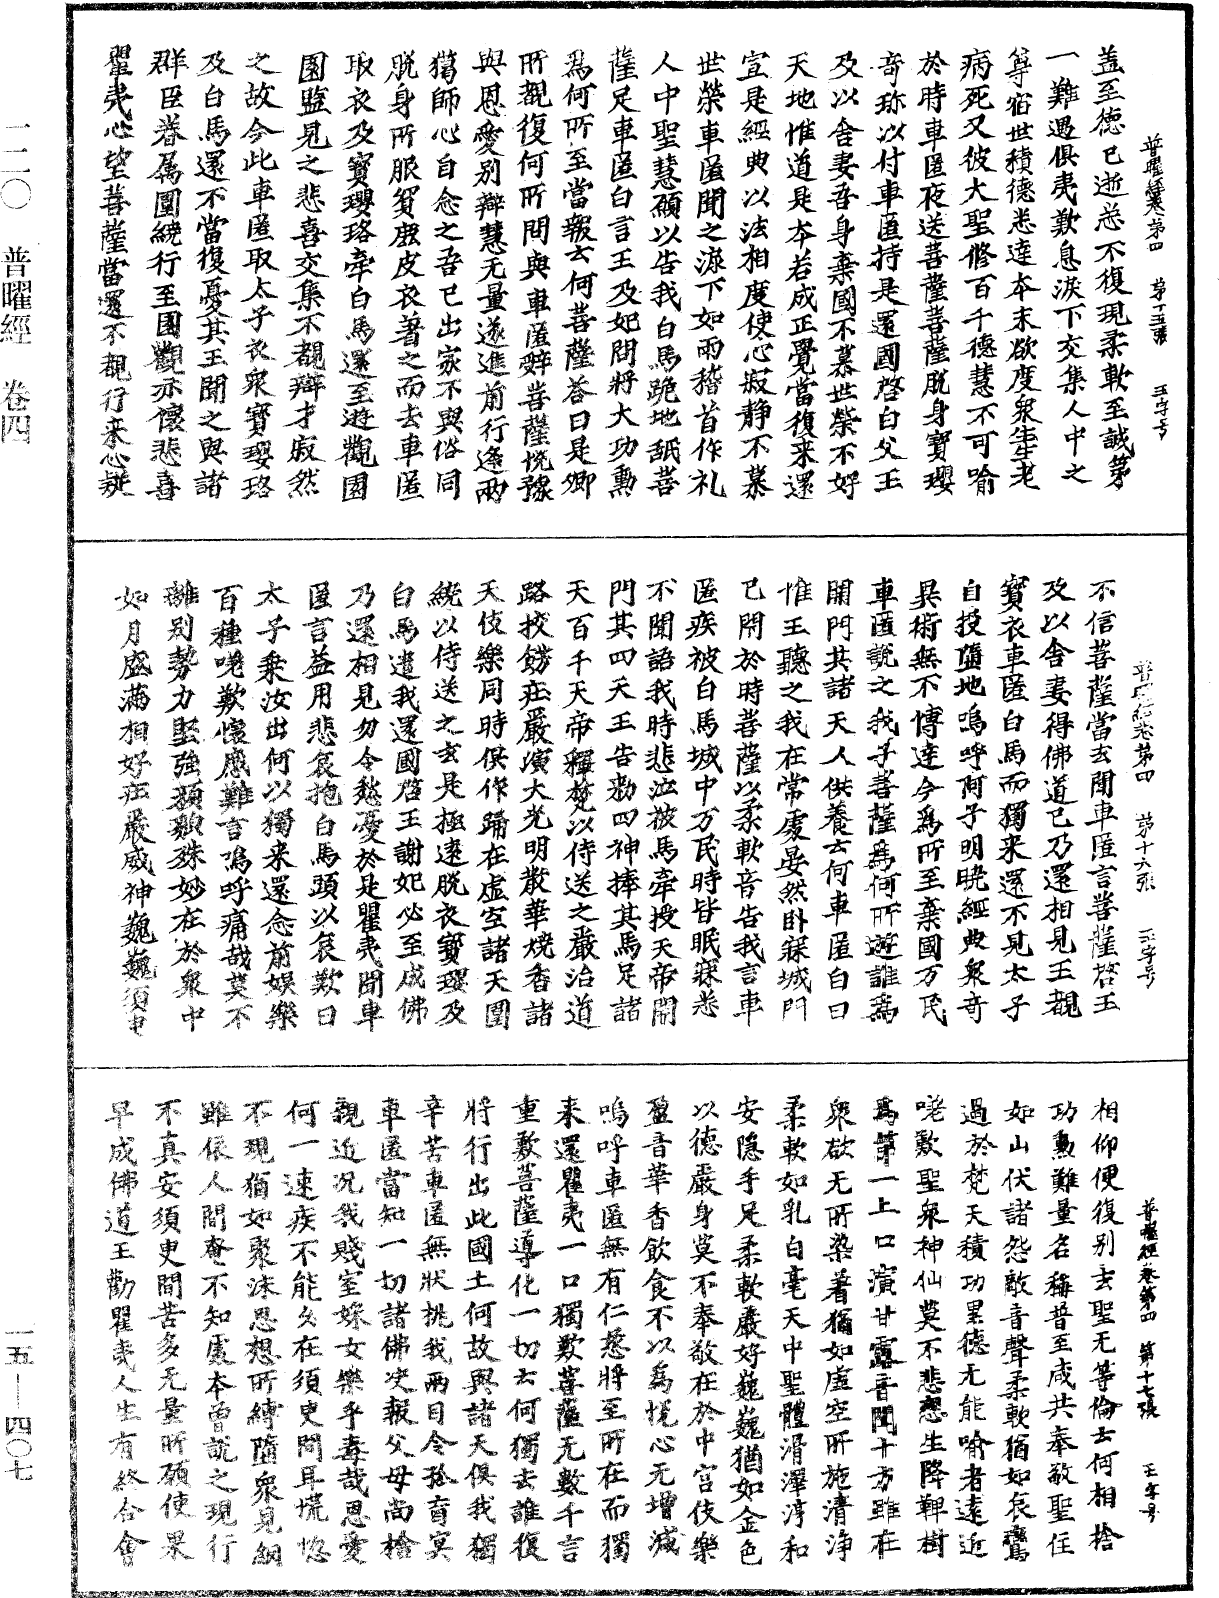 蓋至德已逝悉不復現柔軟至誠第
一難遇俱夷歎息淚下交集人中之
尊宿世積德悉達本末欲度衆生老
病死又彼大聖修百千德慧不可喻
於時車匿夜送菩薩菩薩脫身寶瓔
奇珎以付車匿持是還國啓白父王
及以舍妻吾身棄國不慕世榮不好
天地惟道是本若成正覺當復来還
宣是經典以法相度使心寂静不慕
世榮車匿聞之淚下如雨稽首作礼
人中聖慧願以告我白馬跪地舐菩
薩足車匿白言王及妃問將大功勳
為何所至當報云何菩薩荅曰是卿
所覩復何所問與車匿辭菩薩恱豫
與恩愛別辯慧无量遂進前行逢兩
獦師心自念之吾已出家不與俗同
脫身所服貿鹿皮衣著之而去車匿
取衣及寶瓔珞牽白馬還至遊觀園
園監見之悲喜交集不覩辯才寂然
之故今此車匿取太子衣衆寶瓔珞
及白馬還不當復憂其王聞之與諸
群臣眷属圍繞行至園觀亦懷悲喜
瞿夷心望菩薩當還不覩行来心疑
普曜經卷第四 第十五張 王字号
不信菩薩當去聞車匿言菩薩啓王
及以舍妻得佛道已乃還相見王覩
寶衣車匿白馬而獨来還不見太子
自投墮地嗚呼阿子明曉經典衆奇
異術無不博達今爲所至棄國万民
車匿說之我子菩薩爲何所遊誰爲
開門其諸天人供養云何車匿白曰
惟王聽之我在常處晏然卧寐城門
已閇於時菩薩以柔軟音告我言車
匿疾被白馬城中万民時皆眠寐悉
不聞語我時悲泣被馬牽授天帝開
門其四天王告勑四神捧其馬足諸
天百千天帝釋梵以侍送之嚴治道
路挍餝莊嚴演大光明散華燒香諸
天伎樂同時俱作歸在虛空諸天圍
繞以侍送之去是極遠脫衣寶瓔及
白馬遣我還國啓王謝妃必至成佛
乃還相見勿令愁憂於是瞿夷聞車
匿言益用悲哀抱白馬頭以哀歎曰
太子乘汝出何以獨来還念前娛樂
百種咾歎懷感難言嗚呼痛哉莫不
離別勢力堅強顏貌殊妙在於衆中
如月盛滿相好莊嚴威神巍巍須臾
普曜經卷第四 第十六張 王字号
相仰便復別去聖无等倫云何相捨
功勳難量名稱普至咸共奉敬聖住
如山伏諸怨敵音聲柔軟猶如哀鸞
過於梵天積功累德无能喻者遠近
咾歎聖衆神仙莫不悲戀生降鞞樹
爲第一上口演甘露音聞十方雖在
衆欲无所染著猶如虛空所施清淨
柔軟如乳白毫天中聖體滑澤淳和
安隱手足柔軟嚴好巍巍猶如金色
以德嚴身莫不奉敬在於中宮伎樂
盈音華香飲食不以為恱心无增減
嗚呼車匿無有仁慈將至所在而獨
来還瞿夷一口獨歎菩薩无數千言
重歎菩薩導化一切云何獨去誰復
將行出此國土何故與諸天俱我獨
辛苦車匿無狀挑我兩目令捨盲冥
車匿當知一切諸佛決報父母尚捨
親近況我賤室婇女樂乎毒哉恩愛
何一速疾不能久在須臾間耳慌惚
不現猶如聚沫思想所縛墮衆見網
雖依人間奄不知處本曾說之現行
不真安須臾間苦多无量所願使果
早成佛道王勸瞿夷人生有終合會
普曜經卷第四 第十七張 王字号
一二〇 普曜經 卷四
一五—四〇七